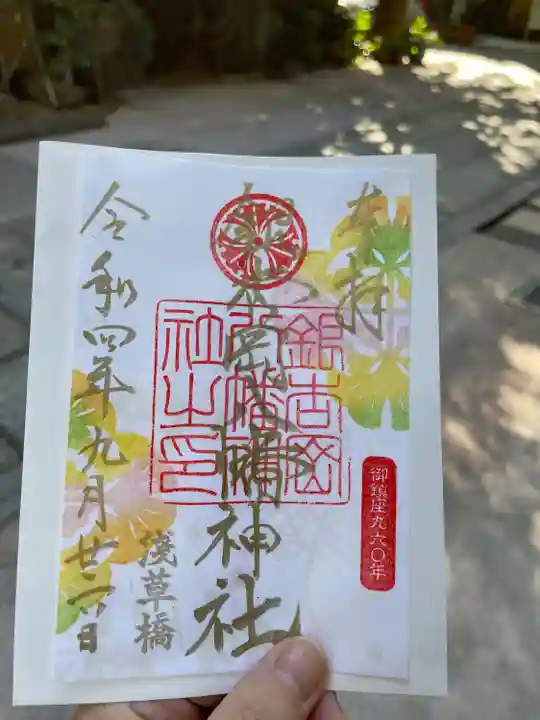 奉拝
銀杏岡八幡神社
銀杏岡
八幡神
社之印
御鎮座九六〇年
浅草橋
令和四年九月廿六日